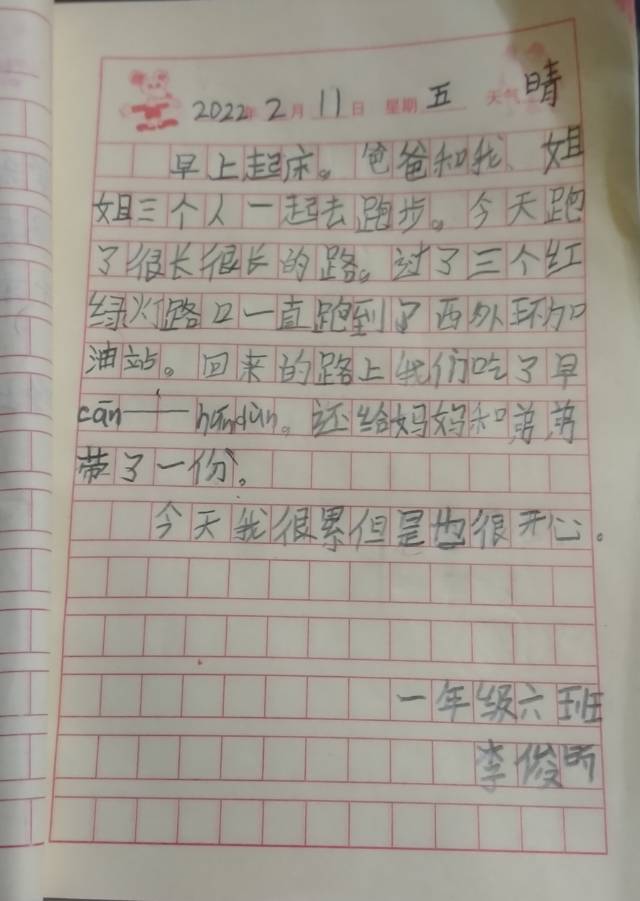 2022年2月11日 星期五 天气晴
早上起床。爸爸和我、姐
姐三个人一起去跑步。今天跑
了很长很长的路。过了三个红
绿灯路口一直跑到了西外环加
油站。回来的路上我们吃了早
cān——húndùn。还给妈妈和弟弟
带了一份。
今天我很累但是也很开心。
一年级六班
李俊